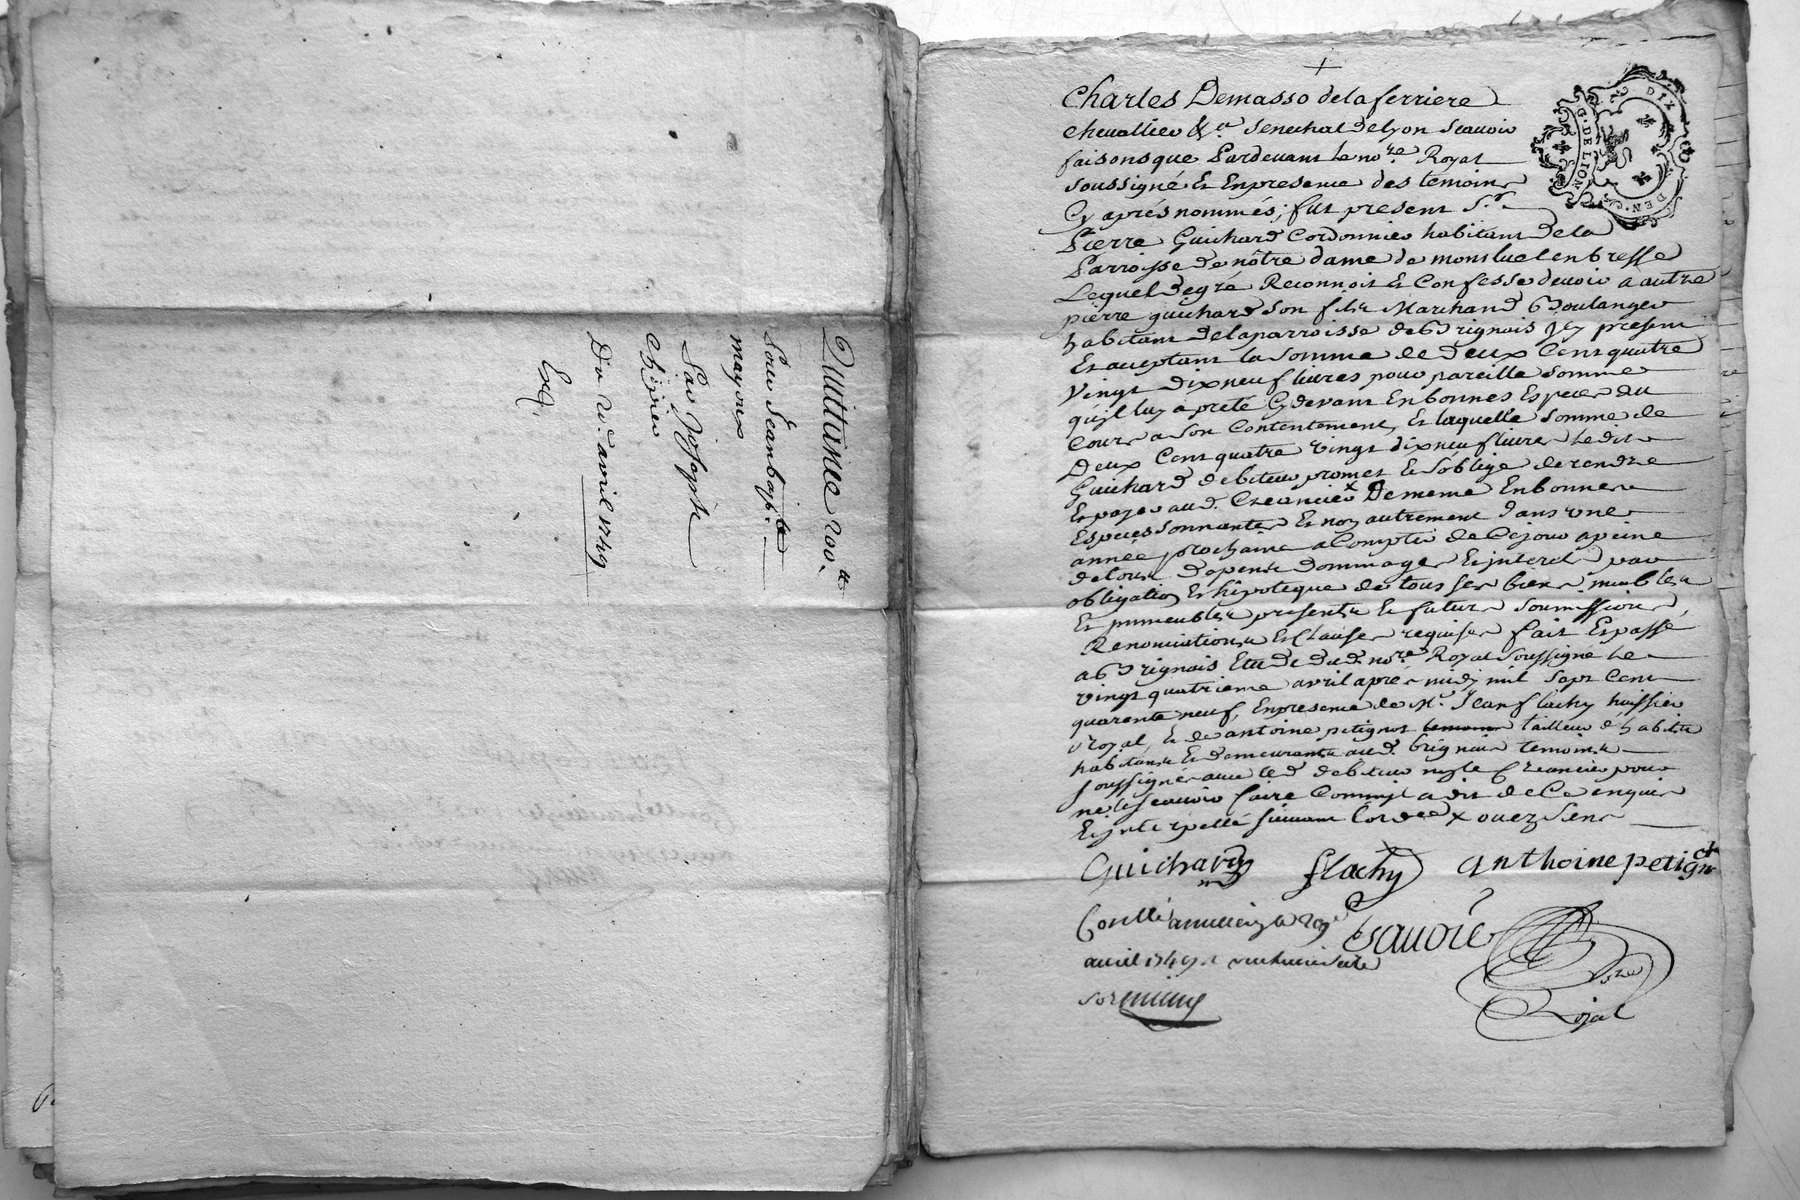 Quittance 200.tt
Pour Jean bapt.te
mayoux
Par Joseph
Du 2. avril 1749
Charles Demasso de la ferriere
chevallier &.a senechal de lyon scavoir
faisons que Pardevant le no.re Royal
soussigné Et En presence des temoins
Cy aprés nommés; fut present S.r
Pierre Guichard Cordonnier habitant de la
Parroisse de nôtre dame de monluel en bresse
Lequel de gré Reconnoit Et Confesse devoir a autre
pierre guichard son fils Marchand Boulanger
habitant de la parroisse de Brignais icy present
Et acceptant la somme de deux Cent quatre
vingt dix neuf livres pour pareille somme
qu'jl luy a preté Cy devant En bonnes Especes du
Cours a son Contentement, Et laquelle somme de
Deux Cent quatre vingt dix neuf livres le dit
Guichard debiteur promet Et s'oblige de rendre
Et payer aud. Creancier x De meme En bonnes
Especes sonnantes Et non autrement dans une
année prochaine a Compter de Ce jour a peine
de tous depens dommages Et jnterets par
obligation Et hipoteque de tous ses biens meubles
Et jmmeubles presents Et futurs soumissions,
Renonciations Et Clauses requises fait Et passé
a Brignais Etude dud. no.re Royal soussigné le
vingt quatrieme avril apres midy mil sept Cent
quarente neuf, En presence de M.r Jean flachy huissier
royal, Et de antoine petignot tailleur d'habits
habitants Et demeurants aud. brignais temoins
soussignés avec led. debiteur non le Creancier pour
ne le scavoir faire Comme jl a dit de Ce enquis
Et jnterpellé suivant l'ord.ce x
Guichard flachy anthoine petignot
Contllé a
avril 1749
DIX DEN.
G. DE LION
Royal